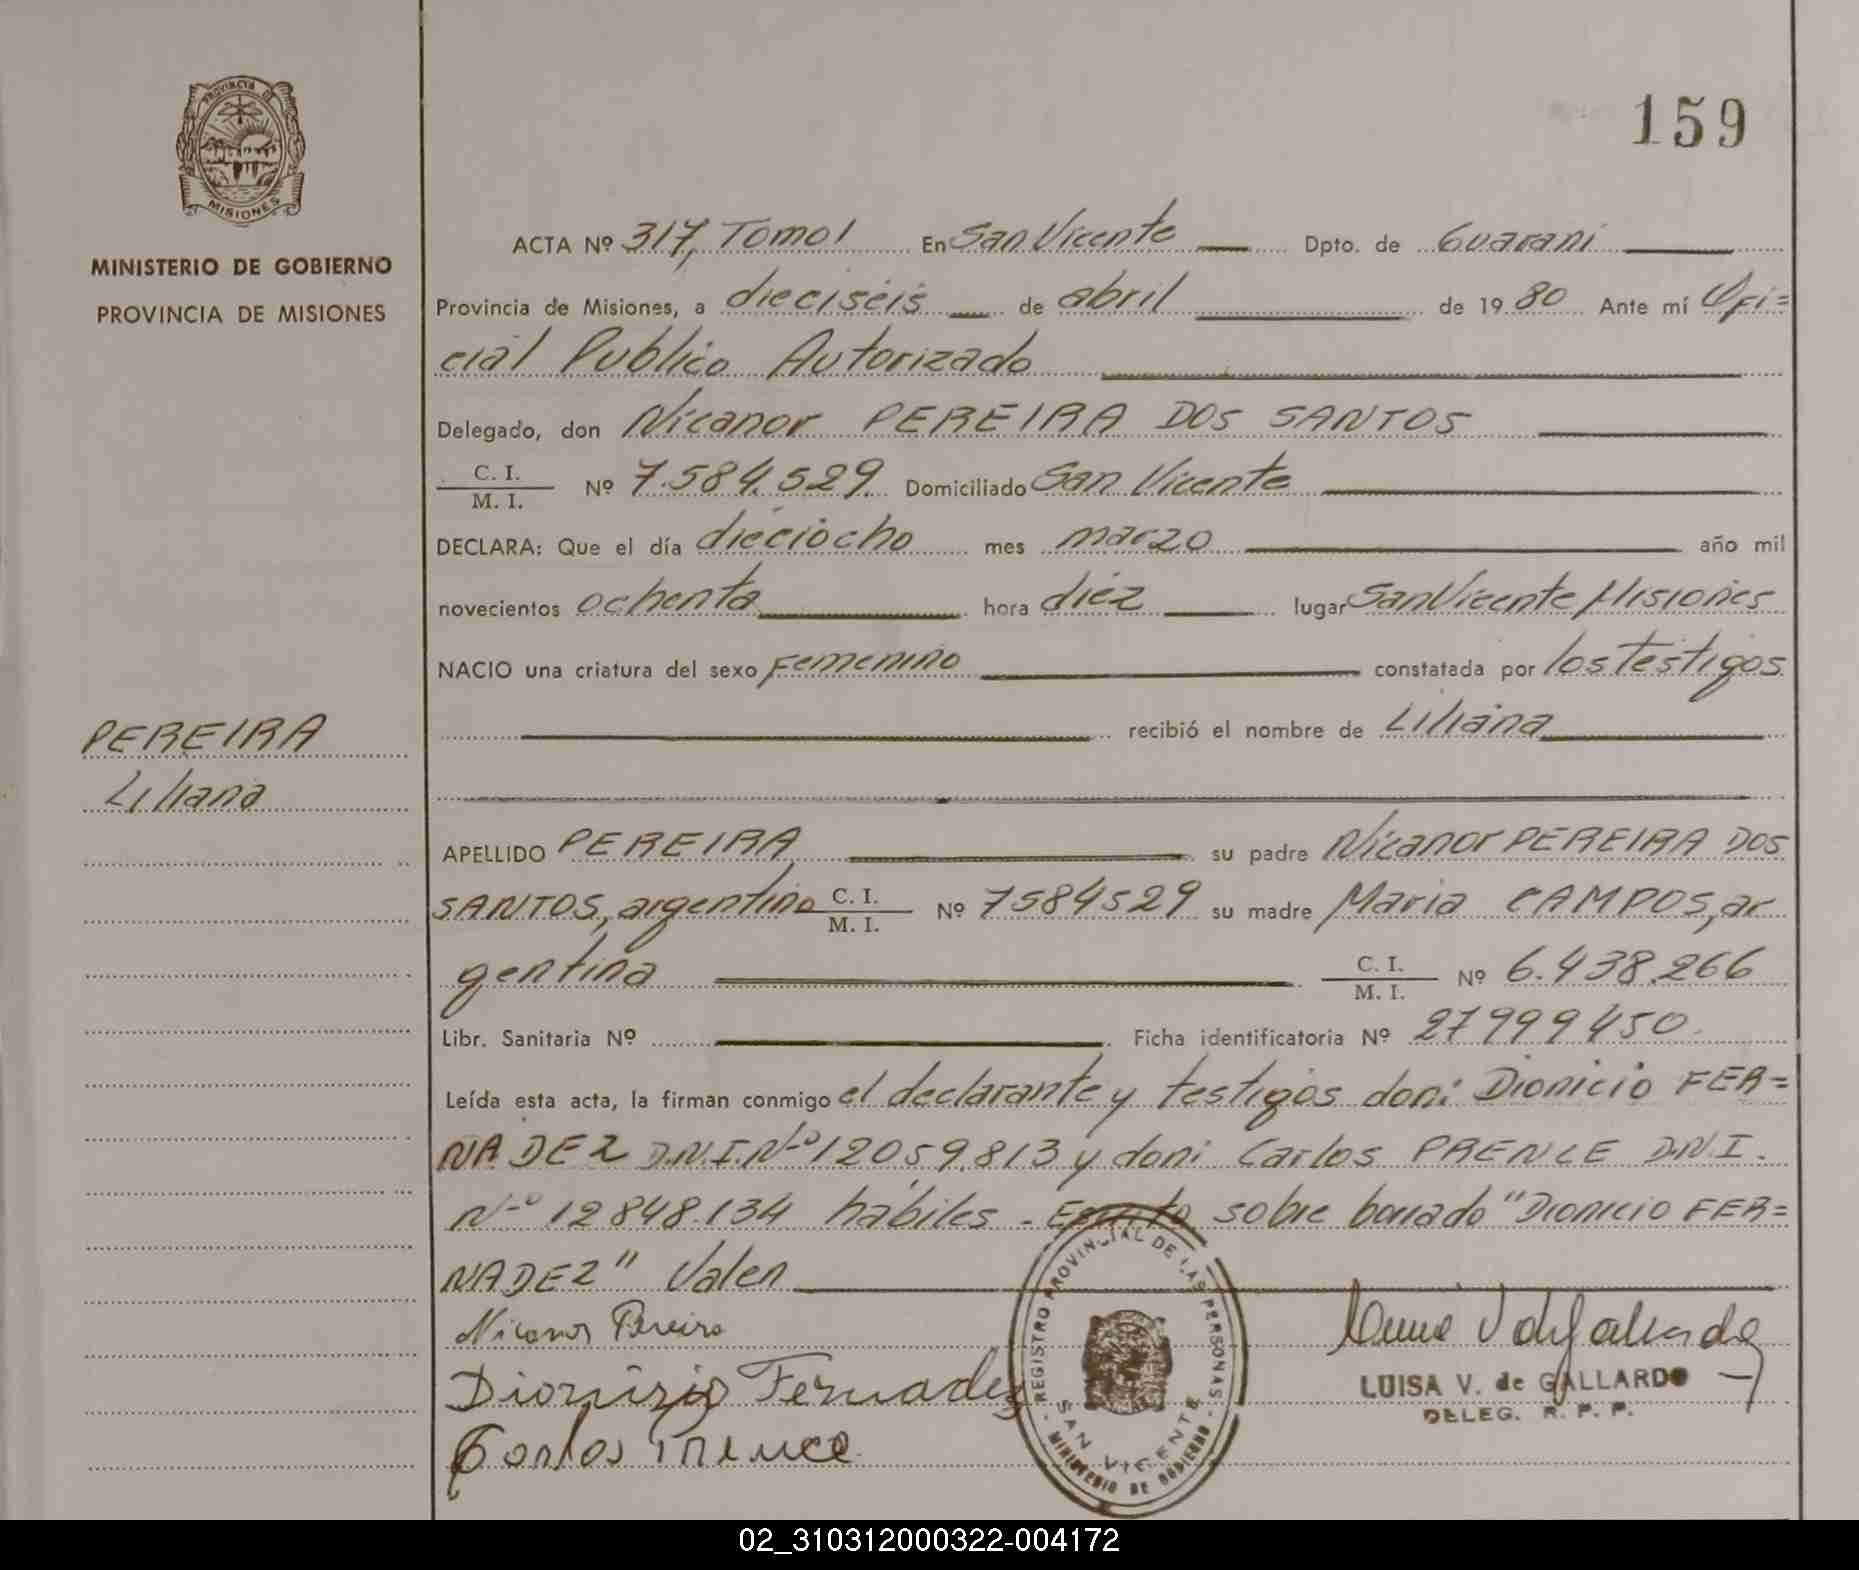 PROVINCIA DE
MISIONES
MINISTERIO DE GOBIERNO
PROVINCIA DE MISIONES
159
ACTA Nº 317, Tomo I En San Vicente Dpto. de Guarani
Provincia de Misiones, a dieciséis de abril de 1980 Ante mí Ofi=
cial Publico Autorizado
Delegado, don Nicanor PEREIRA DOS SANTOS
C. I. / M. I. Nº 7.584.529 Domiciliado San Vicente
DECLARA: Que el día dieciocho mes marzo año mil
novecientos ochenta hora diez lugar San Vicente Misiones
NACIO una criatura del sexo femenino constatada por los testigos
recibió el nombre de Liliana
PEREIRA
Liliana
APELLIDO PEREIRA su padre Nicanor PEREIRA DOS
SANTOS, argentino C. I. / M. I. Nº 7584529 su madre Maria CAMPOS, ar
gentina C. I. / M. I. Nº 6.438.266
Libr. Sanitaria Nº Ficha identificatoria Nº 27999450
Leída esta acta, la firman conmigo el declarante y testigos don: Dionicio FER=
NADEZ D.N.I. Nº 12059.813 y don: Carlos PRENCE D.N.I.
Nº 12848.134 hábiles - Escrito sobre borrado "Dionicio FER=
NADEZ" Valen
Nicanor Pereira
Dionizio Fernadez
Carlos Prence
REGISTRO PROVINCIAL DE LAS PERSONAS
SAN VICENTE
MINISTERIO DE GOBIERNO
LUISA V. de GALLARDO
DELEG. R. P. P.
02_310312000322-004172